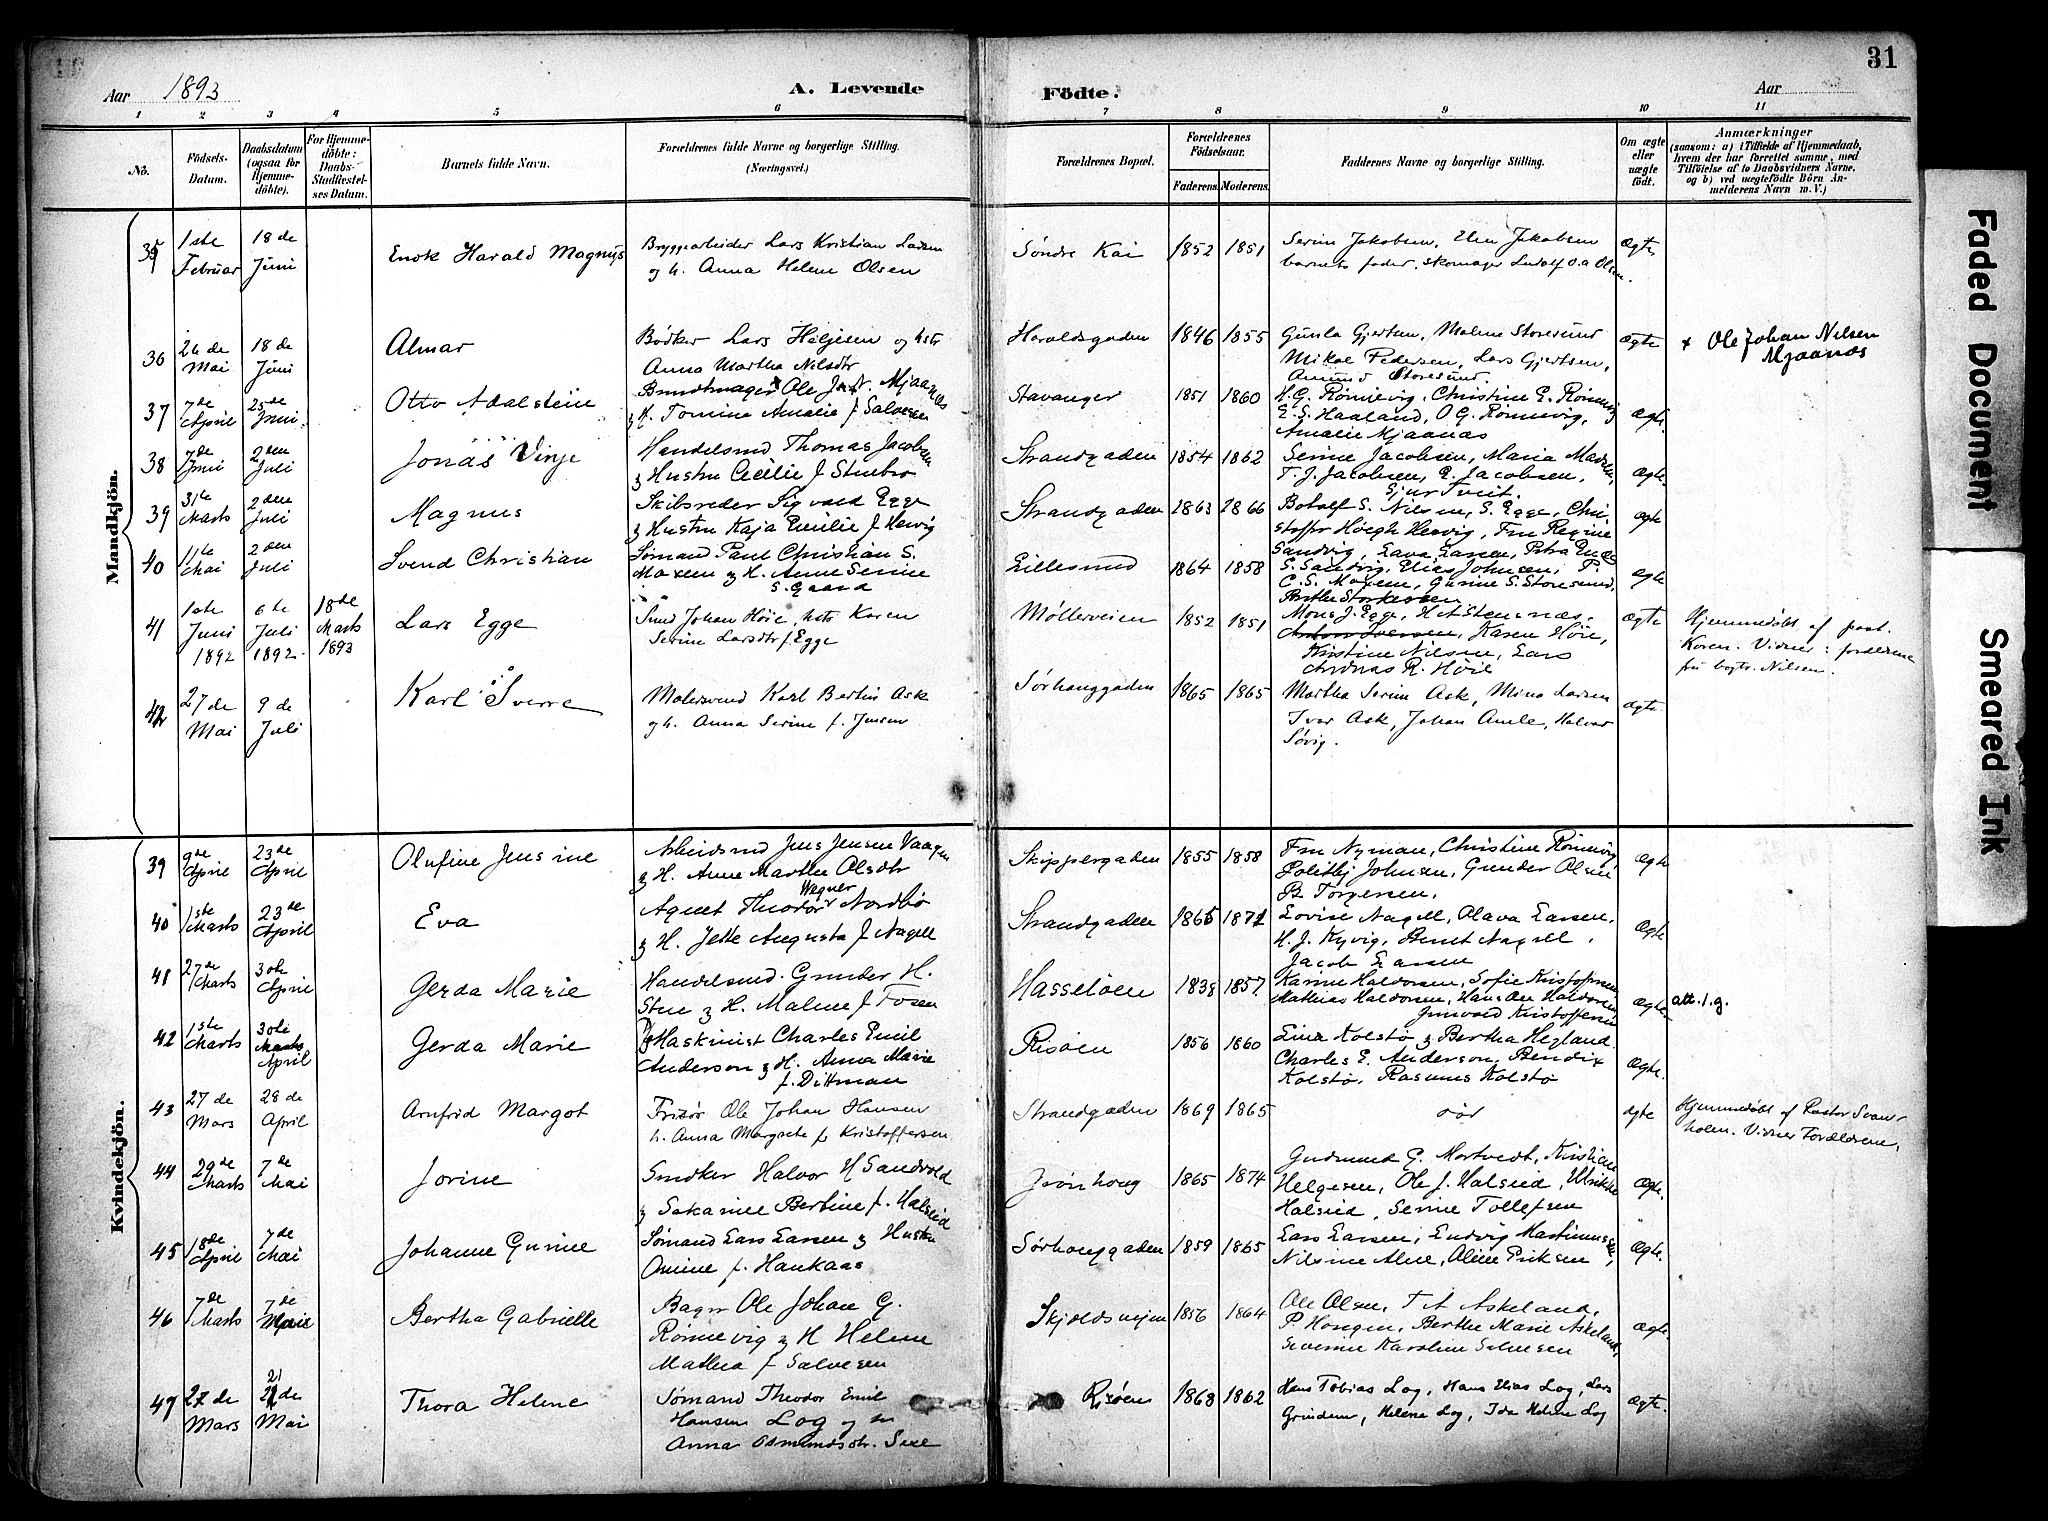 31
Aar 1893
A. Levende
Födte.
Aar
1 2 3 4 5 6 7 8 9 10 11
No.
Födsels-
Datum.
Daabsdatum
(ogsaa for
Hjemme-
döbte).
For Hjemme-
döbte:
Daabs-
Stadfæstel-
ses Datum.
Barnets fulde Navn.
Forældrenes fulde Navne og borgerlige Stilling.
(Næringsvei.)
Forældrenes Bopæl.
Forældrenes
Födselsaar.
Faderens. Moderens.
Faddernes Navne og borgerlige Stilling.
Om ægte
eller
uægte
födt.
Anmærkninger
(saasom: a) i Tilfælde af Hjemmedaab,
hvem der har forrettet samme, med
Tilföielse af to Daabsvidners Navne,
og b) ved uægtefödte Börn An-
melderens Navn m. V.)
Mandkjön.
35 1ste Februar 18de Juni
Enok Harald Magnus
Bryggearbeider Lars Kristian Larsen
og h. Anna Helene Olsen
Søndre Kai 1852 1851
Serine Jakobsen, Elen Jakobsen
barnets fader, skomager Ludolf O.A Olsen.
Ægte
36 26de Mai 18de Juni
Almar
Bødker Lars Helgesen og hstr
Anna Martha Nilsdtr
Haraldsgaden 1846 1855
Gunla Gjertsen, Malene Storesund
Mikal Pedersen, Lars Gjertsen,
Amund Storesund.
Ægte
x Ole Johan Nilsen
Mjaanæs
37 7de April 25de Juni.
Otto Adalstein
Buntmager Ole Mjaanæs
& H. Tomine Amalie f Salvesen
Stavanger 1851 1860
H.G. Rönnevig, Christine E. Rönnevig
E.S. Haaland, O G. Rönnevig,
Amalie Mjaanæs
Ægte.
38 7de Juni 2den Juli
Jonas Vinje
Handelsmd Thomas Jacobsen
& Hustru Cecilie f
Strandgaden 1854 1862
Serine Jacobsen, Maria Madsen,
T. J. Jacobsen, E. Jacobsen,
Gjur Tveit.
Ægte.
39 31te Marts 2den Juli
Magnus
Skibsreder Sigvald Egge
& Hustru Kaja Emilie f Hervig
Strandgaden 2863 2866
Botolf S. Nilsen, S. Egge, Chri-
stoffer Höegh Hervig, Fru Regine
Sandvig, Lava Larsen, Petra
Ægte
40 11te Mai 2den Juli
Svend Christian
Sömand Paul Christian S.
& H. Anne Serine
S. Gaard
Lillesund 1864 1858
S. Sandvig, Elias Johnsen, P.
C.S. Gurine S. Storesund,
Ægte
41 1ste Juni 1892 6te Juli 1892. 18de Marts 1893
Lars Egge
Smed Johan Höie, hstr Karen
Serine Larsdtr f. Egge
Møllerveien 1852 1851
Mons J. Egge, H A Stensnæs,
Iversen, Karen Höie,
Kristine Nilsen, Lars
Andreas R. Höie
Ægte
Hjemmedöbt af past.
Koren. Vidner: forældrene
fru bagtr. Nilsen.
42 27de Mai 9de Juli
Karl Sverre
Malersvend Karl Bertin Ask
og h. Anna Serine f. Jensen
Sørhauggaden 1865 1865
Martha Serine Ask, Mina Larsen
Ivar Ask, Johan Amle, Halvar
Sövig.
Ægte.
Kvindekjön.
39 9de April 23de April
Olufine Jensine
Arbeidsmd Jens Jensen Vaagen
& H. Anne Marthe Olsdtr
Skippergaden 1855 1858
Fru Nyman, Christine Rönnevig
Politibj Johnsen, Gunder Olsen
Torgersen.
Ægte
40 1ste Marts 23de April
Eva
Agent Theodor Wagner Nordbö
& H. Jette Augusta f Nagell
Strandgaden 1865 1871
Lovise Nagell, Olava Larsen,
H. J. Kyvig, Bernt Nagell,
Jacob Larsen
Ægte
41 27de Marts 30te April
Gerda Marie
Handelsmd. Gunder H.
Stue & H. Malene f Fosen
Hasseløen 1838 1857.
Karine Haldorsen, Sofie Kristofersen
Mathias Haldorsen, Hans Ole Haldorsen,
Gunvald Kristoffersen
Ægte.
att. 1. g.
42 1ste Marts 30te Marts April
Gerda Marie
Maskinist Charles Emil
Anderson & H. Anna Marie
f. Dittman
Risøen 1856 1860
Lina Kolstø & Bertha Hegland.
Charles E. Anderson, Bendix
Kolstø, Rasmus Kolstø
Ægte.
43 27de Mars 28de April
Arnfrid Margot
Frisör Ole Johan Hansen
h. Anna Margrete f Kristoffersen
Strandgaden 1869 1865
ægte
Hjemmedöbt af Pastor Svan-
holm. Vidner Forældrene,
44 29de Marts 7de Mai
Jorine
Snedker Halvor H Sandvold
& Sakamie Bertine f. Halseid
1865 1874
Gudmund G. Mortvedt, Kristiane
Helgesen, Ole J. Halseid, Ulrikke
Halseid, Serine Tollefsen
Ægte.
45 18de April 7de Mai
Johanne Gurine
Sømand Lars Larsen & Hustru
Omine f. Haukaas
Sørhauggaden 1859 1865
Lars Larsen, Ludvig Martinussen,
Nilsine Alne, Oline Eriksen
Ægte.
46 7de Marts 7de
Bertha Gabrielle
Bager Ole Johan G.
Rönnevig & H Helene
Mathea f Salvesen
Skjoldsvejen 1856 1864
Ole Olsen, T A Askeland,
P. Haugen, Berthe Marie Askeland,
Severine Karoline Salvesen
Ægte.
47 27de Mars 21de Mai
Thora Helene
Sømand Theodor Emil
Hansen Log og h
Anna Osmundsdtr.
Risøen 1868 1862
Hans Tobias Log, Hans Elias Log, Lars
Grindem, Helene Log, Ida Helene Log
Ægte.
Faded Document
Smeared Ink